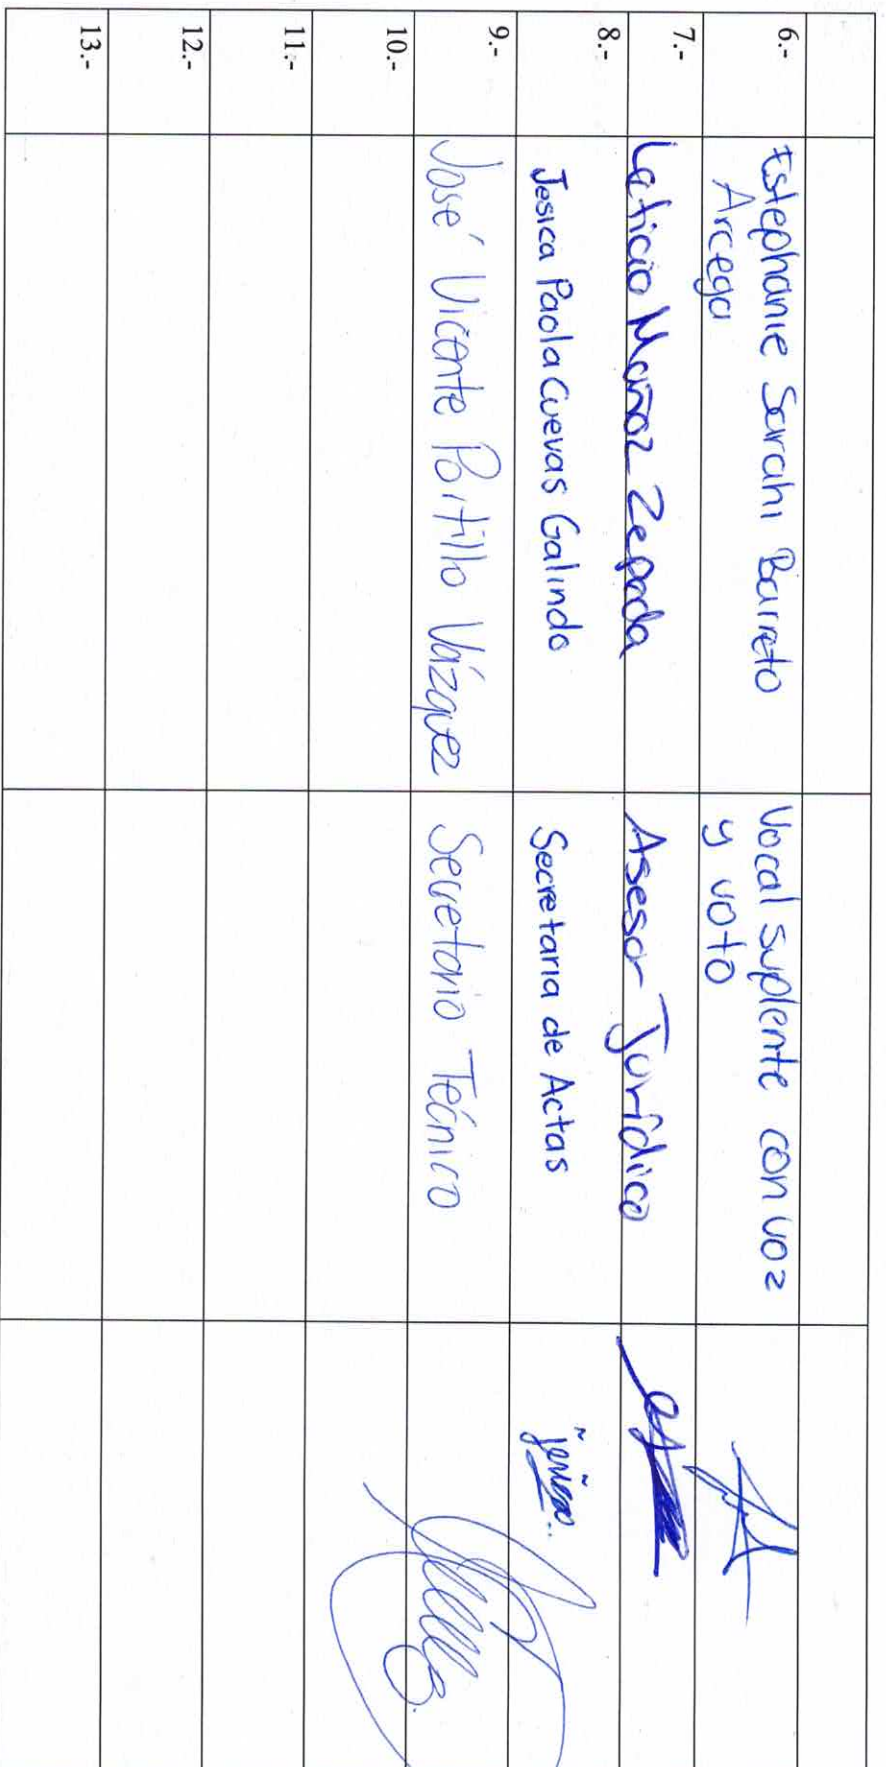 6.-
Estephanie Sarahi Barreto
Arcega
Vocal suplente con voz
y voto
7.-
Leticia Muñoz Zepeda
Asesor Jurídico
8.-
Jesica Paola Cuevas Galindo
Secretaria de Actas
9.-
José Vicente Portillo Vázquez
Secretario Técnico
10.-
11.-
12.-
13.-